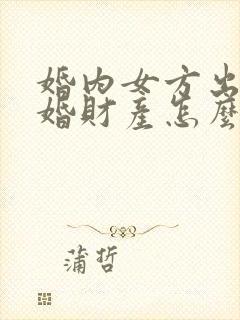 婚内女方出
婚財產怎麼
蒲哲